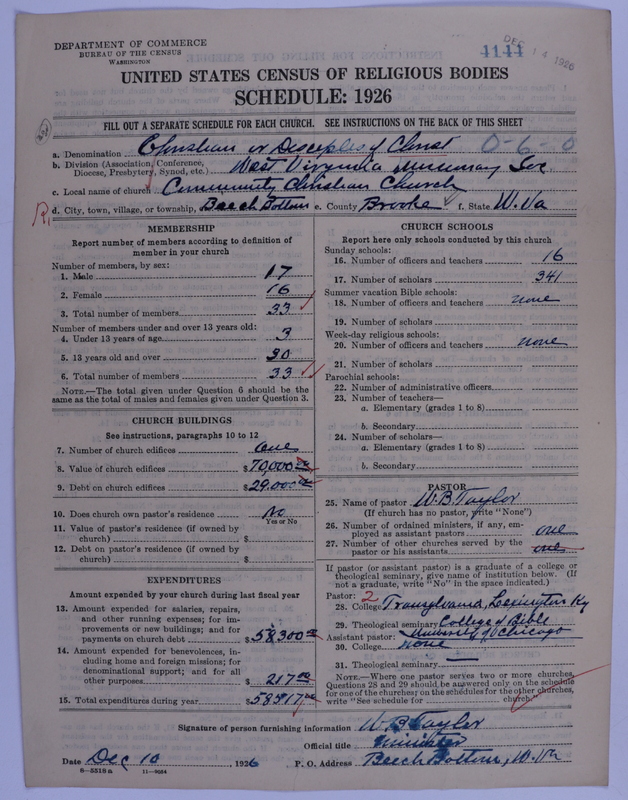 DEPARTMENT OF COMMERCE
BUREAU OF THE CENSUS
WASHINGTON
1144
DEC 14 1926
UNITED STATES CENSUS OF RELIGIOUS BODIES
SCHEDULE: 1926
FILL OUT A SEPARATE SCHEDULE FOR EACH CHURCH. SEE INSTRUCTIONS ON THE BACK OF THIS SHEET
a. Denomination Christian or Disciples of Christ 0-6-0
b. Division (Association, Conference, Diocese, Presbytery, Synod, etc.) West Virginia Missionary Soc.
c. Local name of church Community Christian Church
d. City, town, village, or township, Beech Bottom e. County Brooke f. State W. Va
MEMBERSHIP
Report number of members according to definition of
member in your church
Number of members, by sex:
1. Male 17
2. Female 16
3. Total number of members 33
Number of members under and over 13 years old:
4. Under 13 years of age 3
5. 13 years old and over 30
6. Total number of members 33
NOTE.—The total given under Question 6 should be the
same as the total of males and females given under Question 3.
CHURCH BUILDINGS
See instructions, paragraphs 10 to 12
7. Number of church edifices one
8. Value of church edifices $70,000.00
9. Debt on church edifices $29,000.00
10. Does church own pastor's residence? No
Yes or No
11. Value of pastor's residence (if owned by
church) $
12. Debt on pastor's residence (if owned by
church) $
EXPENDITURES
Amount expended by your church during last fiscal year
13. Amount expended for salaries, repairs,
and other running expenses; for im-
provements or new buildings; and for
payments on church debt $58,300.00
14. Amount expended for benevolences, in-
cluding home and foreign missions; for
denominational support; and for all
other purposes $217.00
15. Total expenditures during year $58,517.00
CHURCH SCHOOLS
Report here only schools conducted by this church
Sunday schools:
16. Number of officers and teachers 16
17. Number of scholars 341
Summer vacation Bible schools:
18. Number of officers and teachers none
19. Number of scholars
Week-day religious schools:
20. Number of officers and teachers none
21. Number of scholars
Parochial schools:
22. Number of administrative officers
23. Number of teachers—
a. Elementary (grades 1 to 8)
b. Secondary
24. Number of scholars—
a. Elementary (grades 1 to 8)
b. Secondary
PASTOR
25. Name of pastor W. B. Taylor
(If church has no pastor, write "None")
26. Number of ordained ministers, if any, em-
ployed as assistant pastors one
27. Number of other churches served by the
pastor or his assistants one
If pastor (or assistant pastor) is a graduate of a college or
theological seminary, give name of institution below. (If
not a graduate, write "No" in the space indicated.)
Pastor: 2
28. College Transylvania, Lexington Ky
29. Theological seminary College of Bible
Assistant pastor: University of Chicago
30. College none
31. Theological seminary —
NOTE.—Where one pastor serves two or more churches,
Questions 28 and 29 should be answered only on the schedule
for one of the churches; on the schedules for the other churches,
write "See schedule for church."
Signature of person furnishing information W. B. Taylor
Official title Minister
Date Dec 10, 1926 P. O. Address Beech Bottom, W. Va
8-5518a 11-9054